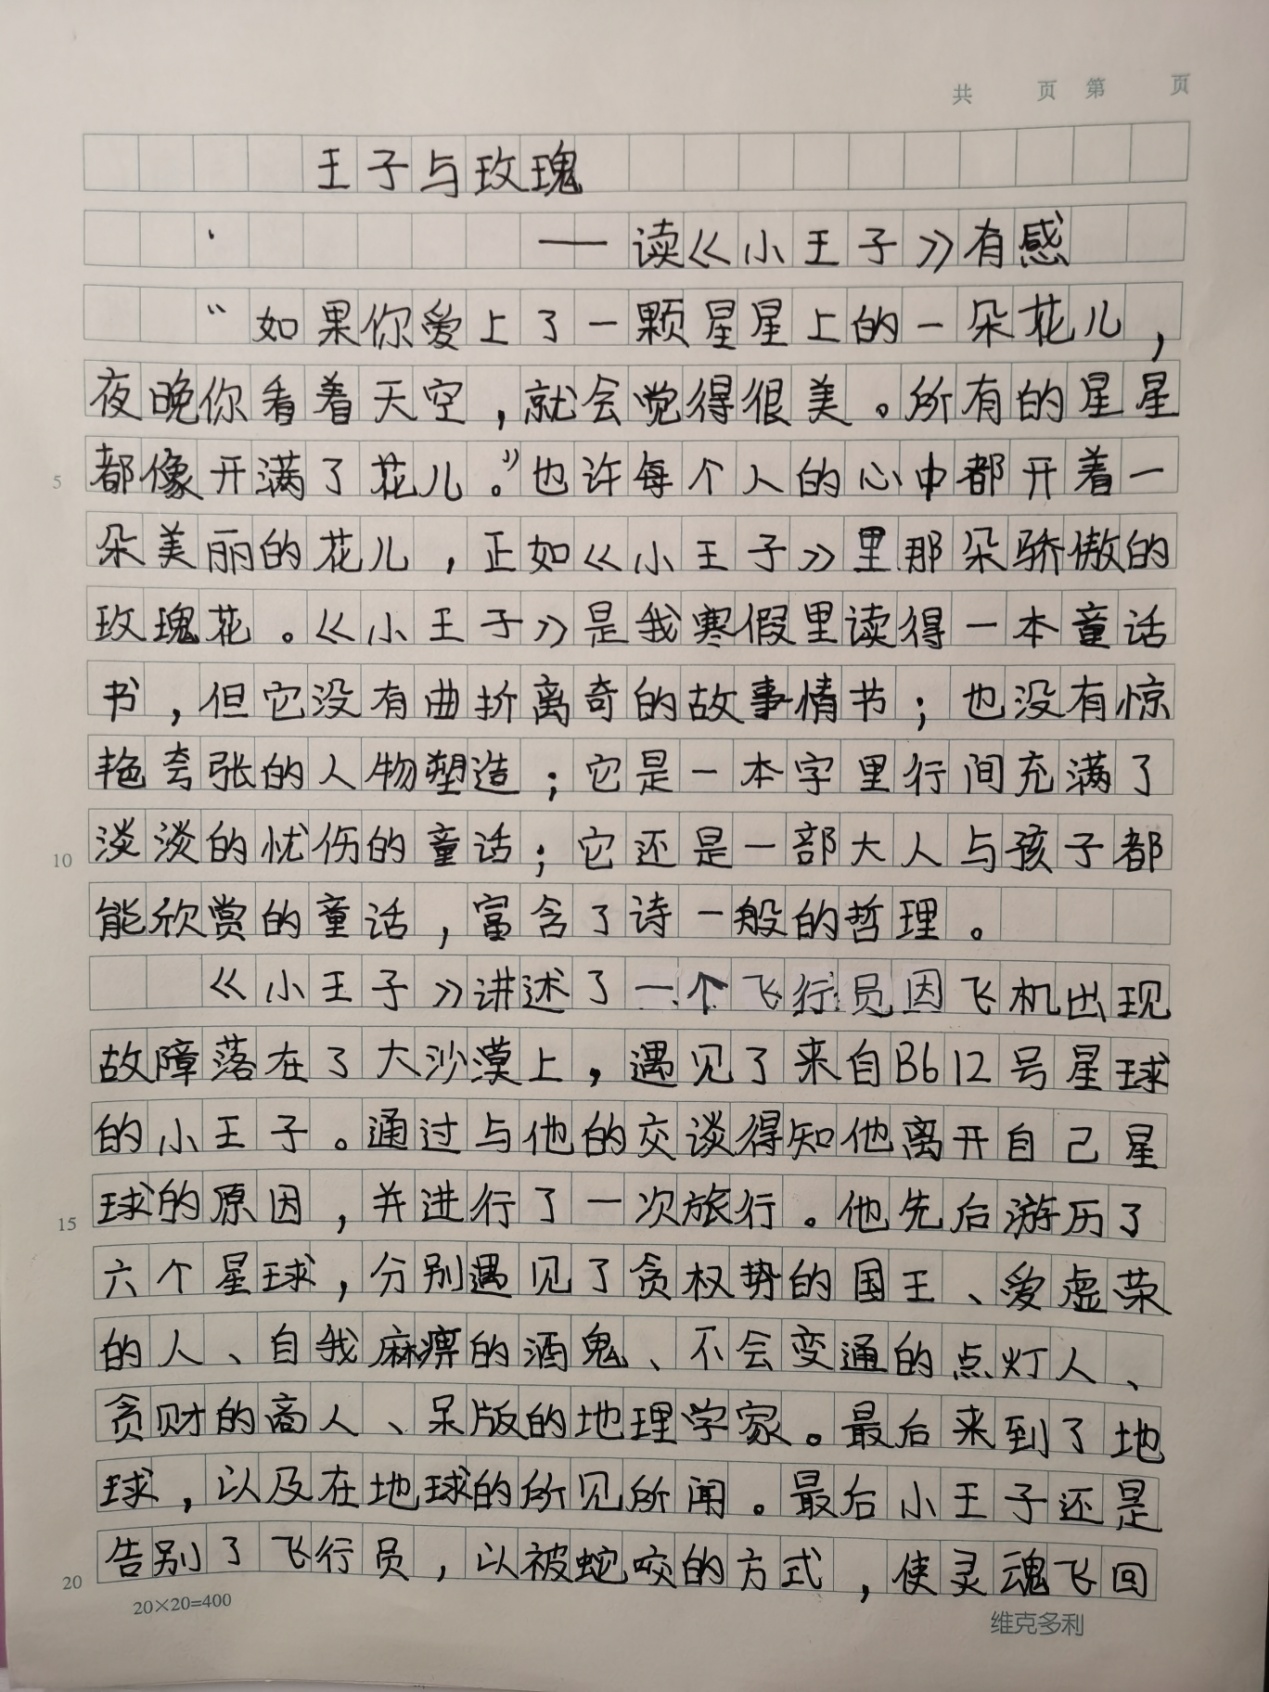 共 页 第 页
王子与玫瑰
——读《小王子》有感
“如果你爱上了一颗星星上的一朵花儿，
夜晚你看着天空，就会觉得很美。所有的星星
都像开满了花儿。”也许每个人的心中都开着一
朵美丽的花儿，正如《小王子》里那朵骄傲的
玫瑰花。《小王子》是我寒假里读得一本童话
书，但它没有曲折离奇的故事情节；也没有惊
艳夸张的人物塑造；它是一本字里行间充满了
淡淡的忧伤的童话；它还是一部大人与孩子都
能欣赏的童话，富含了诗一般的哲理。
《小王子》讲述了一个飞行员因飞机出现
故障落在了大沙漠上，遇见了来自B612号星球
的小王子。通过与他的交谈得知他离开自己星
球的原因，并进行了一次旅行。他先后游历了
六个星球，分别遇见了贪权势的国王、爱虚荣
的人、自我麻痹的酒鬼、不会变通的点灯人、
贪财的商人、呆版的地理学家。最后来到了地
球，以及在地球的所见所闻。最后小王子还是
告别了飞行员，以被蛇咬的方式，使灵魂飞回
5
10
15
20
20×20=400
维克多利